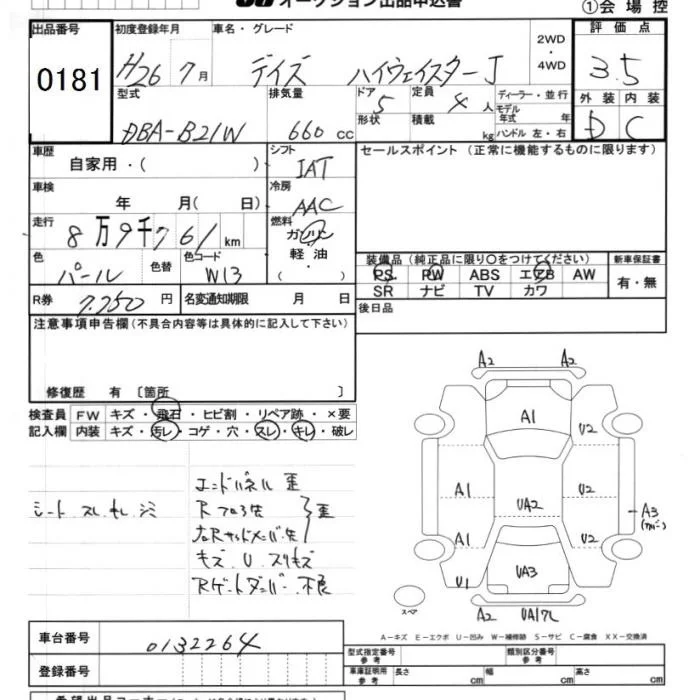 オークション出品申込書 ①会場控
出品番号 初度登録年月 車名・グレード 2WD・4WD 評価点
0181 H26 7月 デイズ ハイウェイスターJ 3.5
型式 排気量 ドア 5 定員 4人 ディーラー・並行 外装 内装
DBA-B21W 660cc 形状 積載 kg モデル年式 年 ハンドル 左・右 D C
車歴 自家用・( ) シフト IAT セールスポイント(正常に機能するものに限ります)
車検 年 月( 日) 冷房 AAC
走行 8万9千761km 燃料 ガソリン・軽油・( )
色 パール 色替 色コード W13
装備品(純正品に限り○をつけてください) 新車保証書
PS PW ABS エアB AW 有・無
SR ナビ TV カワ
R券 7,250円 名変通知期限 月 日 後日品
注意事項申告欄(不具合内容等は具体的に記入して下さい)
修復歴 有〔箇所 〕
検査員 FW キズ・飛石・ヒビ割・リペア跡・×要
記入欄 内装 キズ・汚レ・コゲ・穴・スレ・キレ・破レ
シート スレ キレ シミ
エンドパネル 歪
Rフロア先 歪
左Rサイドメンバー先
キズ U スリキズ
Rゲートダンパー 不良
A2 A2
A1 U2
A1 UA2 U2
A3
A1 U2
U1 UA3
スペア A2 UA17L
A-キズ E-エクボ U-凹み W-補修跡 S-サビ C-腐食 XX-交換済
車台番号 0132264
型式指定番号 参考 類別区分番号 参考
登録番号 車庫証明用 参考 長さ cm 幅 cm 高さ cm